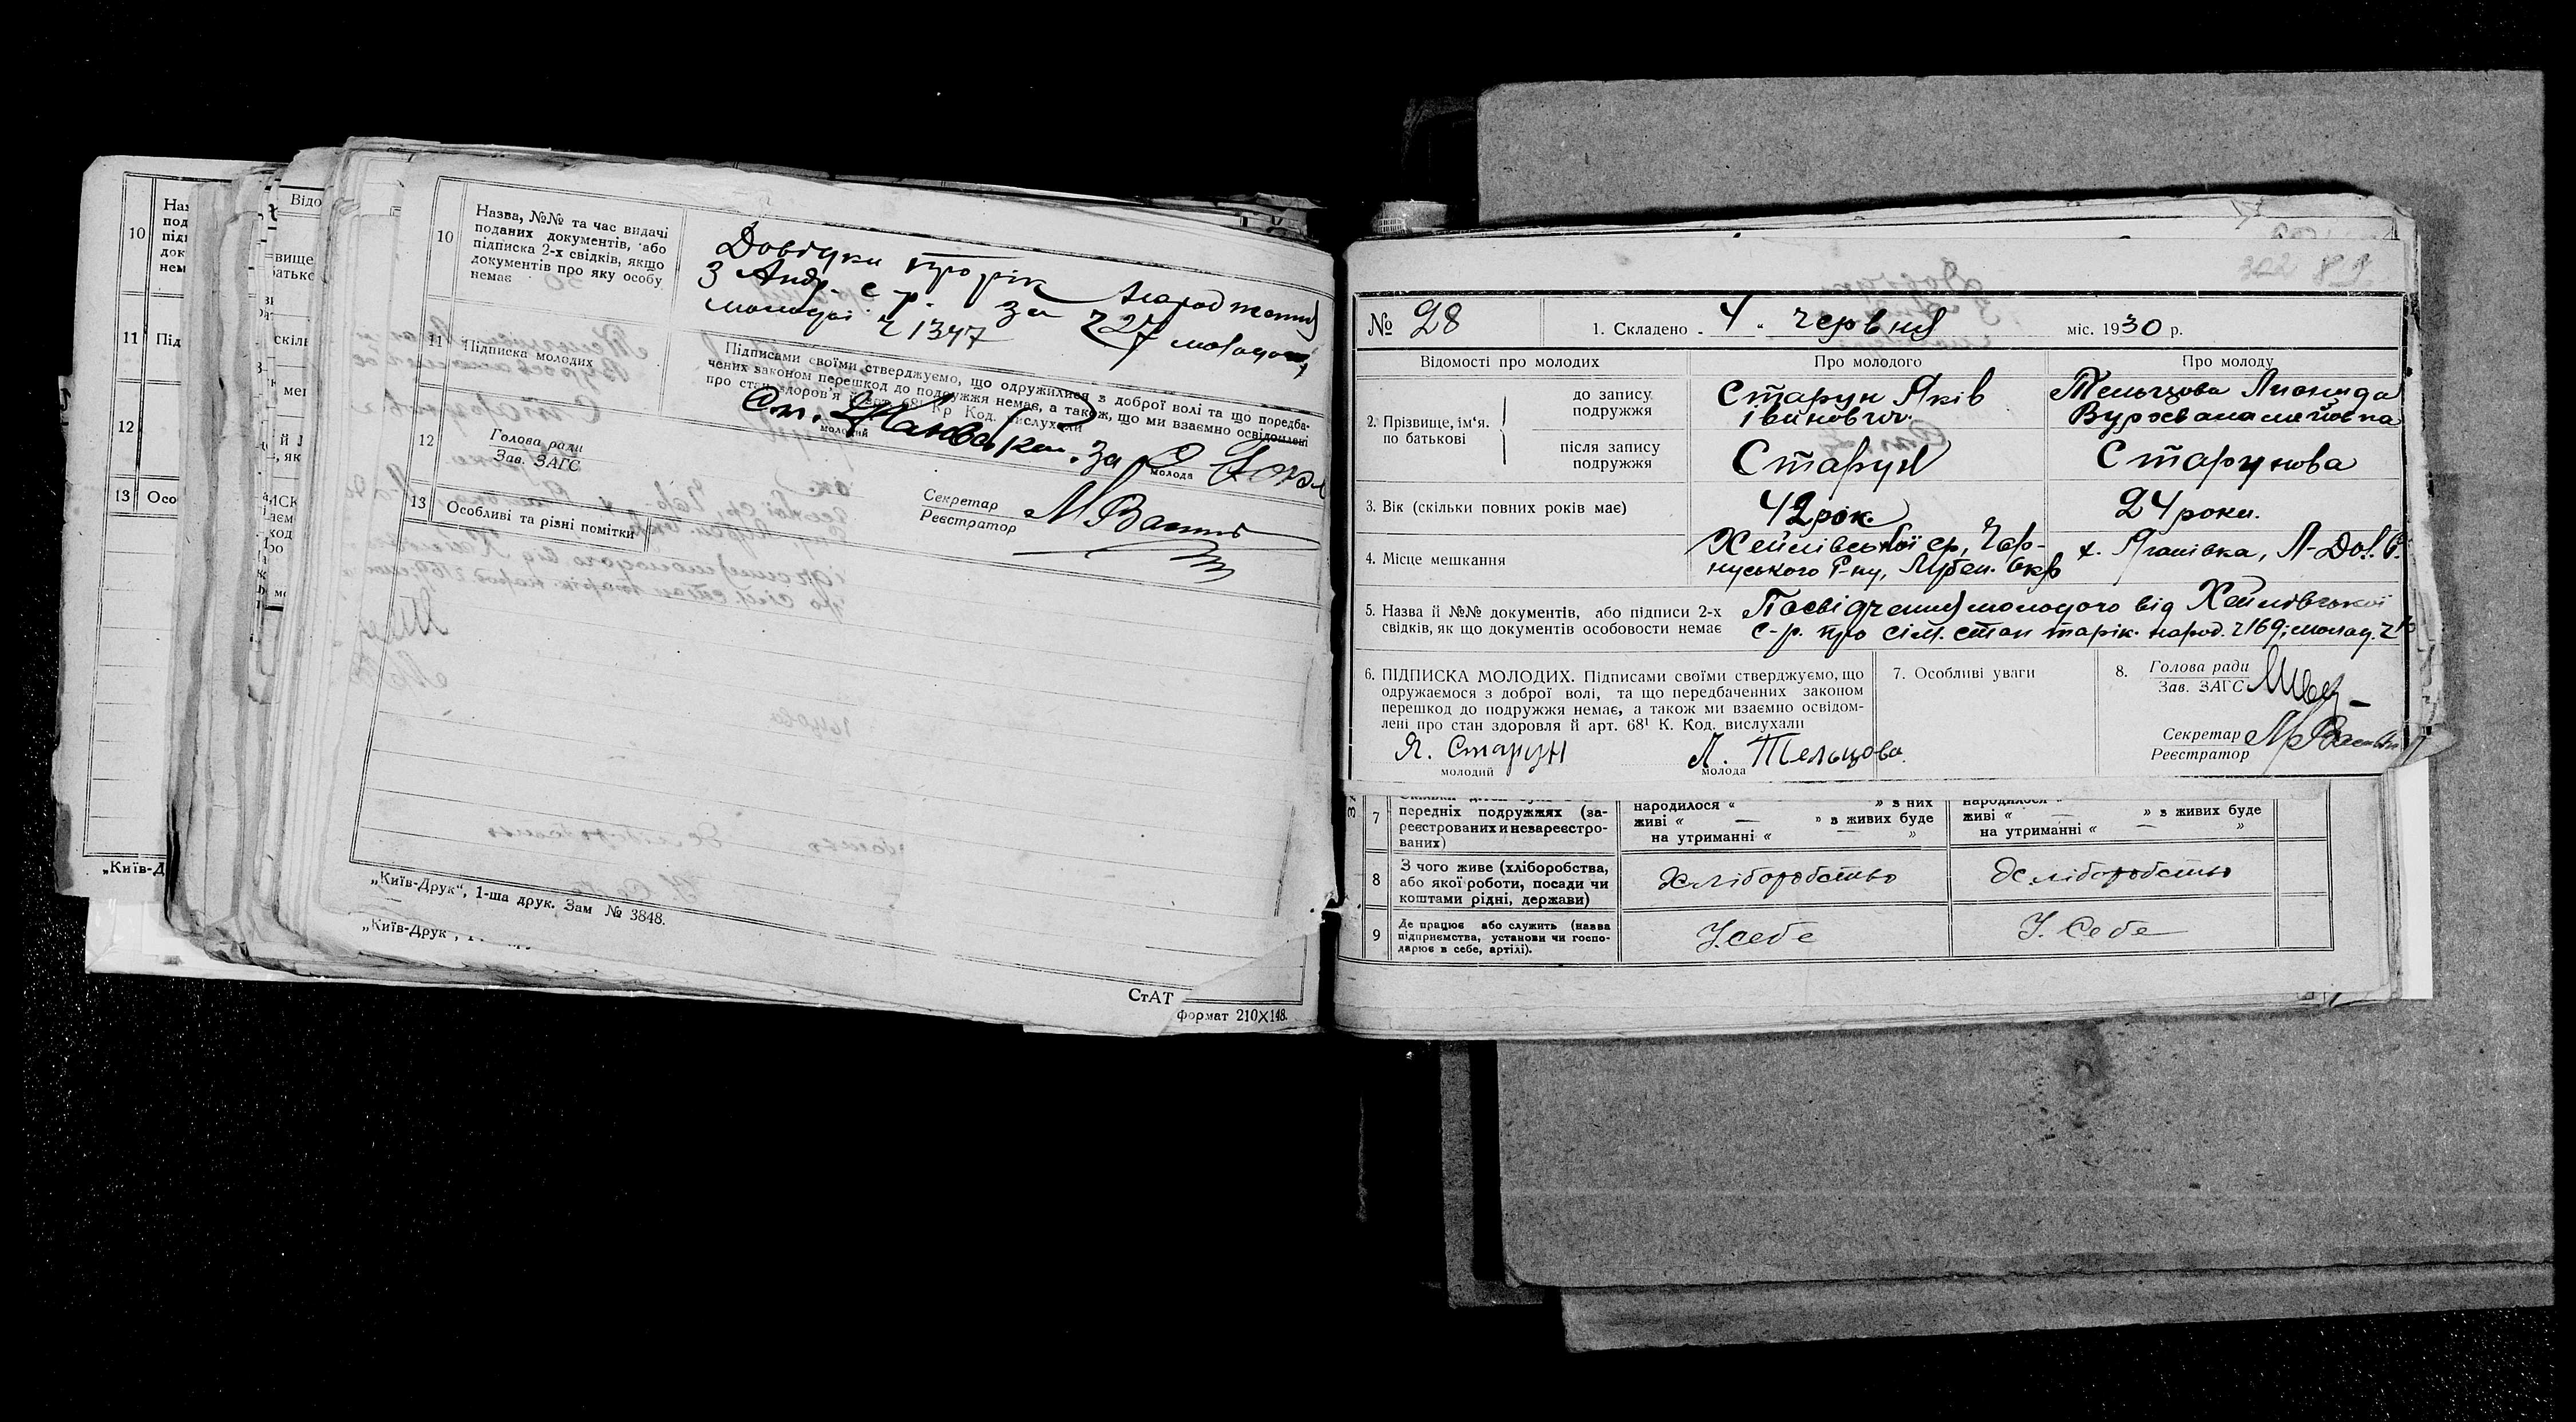 10
Назва, №№ та час видачі
поданих документів, або
підписка 2-х свідків, якщо
документи про яку особу
немає
Довідки про рік народження
З Андр. с. р. за № 27 молодої,
молодої № 1347
11 Підписка молодих
Підписами своїми стверджуємо, що одружилися з доброї волі та що поредба-
чених законом перешкод до подружжя немає, а також, що ми взаємно освідомлені
про стан здоров'я й арт. 68¹ Кр Код. вислухали
молодий
молода
12
Голова ради
Зав. ЗАГС
Секретар
Реєстратор
13 Особливі та різні помітки
„Київ-Друк“, 1-ша друк. Зам № 3848.
„Київ-Друк
СтАТ
формат 210Х148.
10
11 Під
12
13 Осо
„Київ-Д
№ 28
1. Складено 4 „ червня міс. 1930 р.
Відомості про молодих
Про молодого
Про молоду
2. Прізвище, ім'я.
по батькові
до запису
подружжя
Старун Яків
Іванович.
Тельцова
після запису
подружжя
Старун
Старунова
3. Вік (скільки повних років має)
42 рок.
24 роки.
4. Місце мешкання
Хейлівської ср, Чор-
нуського Р-ну, Лубен. Окр
5. Назва й №№ документів, або підписи 2-х
свідків, як що документів особовости немає
Посвідчення молодого від Хейлівської
с-р. про сім. стан та рік. народ. № 169; молод. №
6. ПІДПИСКА МОЛОДИХ. Підписами своїми стверджуємо, що
одружаємося з доброї волі, та що передбаченних законом
перешкод до подружжя немає, а також ми взаємно освідом-
лені про стан здоровля й арт. 68¹ К. Код. вислухали
Я. Старун
молодий
Л. Тельцова.
молода
7. Особливі уваги
8. Голова ради
Зав. ЗАГС
Секретар
Реєстратор
7
передніх подружжях (за-
реєстрованих и незареєстро-
ваних)
народилося “ » з них
живі “ — » з живих буде
на утриманні “ — »
живі “ — » з живих буде
на утриманні “ — »
8
З чого живе (хліборобства,
або якої роботи, посади чи
коштами рідні, держави)
Хліборобство
Хліборобство
9
Де працює або служить (назва
підприємства, установи чи госпо-
дарює в себе, артілі).
У себе
У. Себе